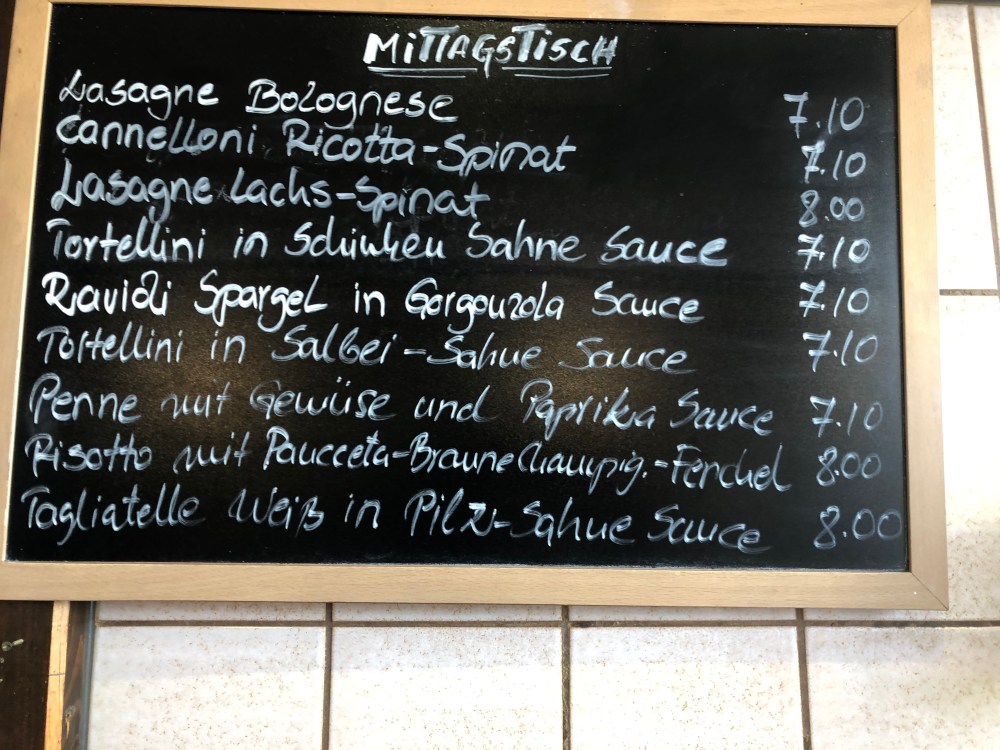 MITTAGSTISCH
Lasagne Bolognese 7.10
Cannelloni Ricotta-Spinat 7.10
Lasagne Lachs-Spinat 8.00
Tortellini in Schinken Sahne Sauce 7.10
Ravioli Spargel in Gorgonzola Sauce 7.10
Tortellini in Salbei-Sahne Sauce 7.10
Penne mit Gewüse und Paprika Sauce 7.10
Risotto mit Pancceta-Braune Champig.-Fenchel 8.00
Tagliatelle Weiß in Pilz-Sahne Sauce 8.00